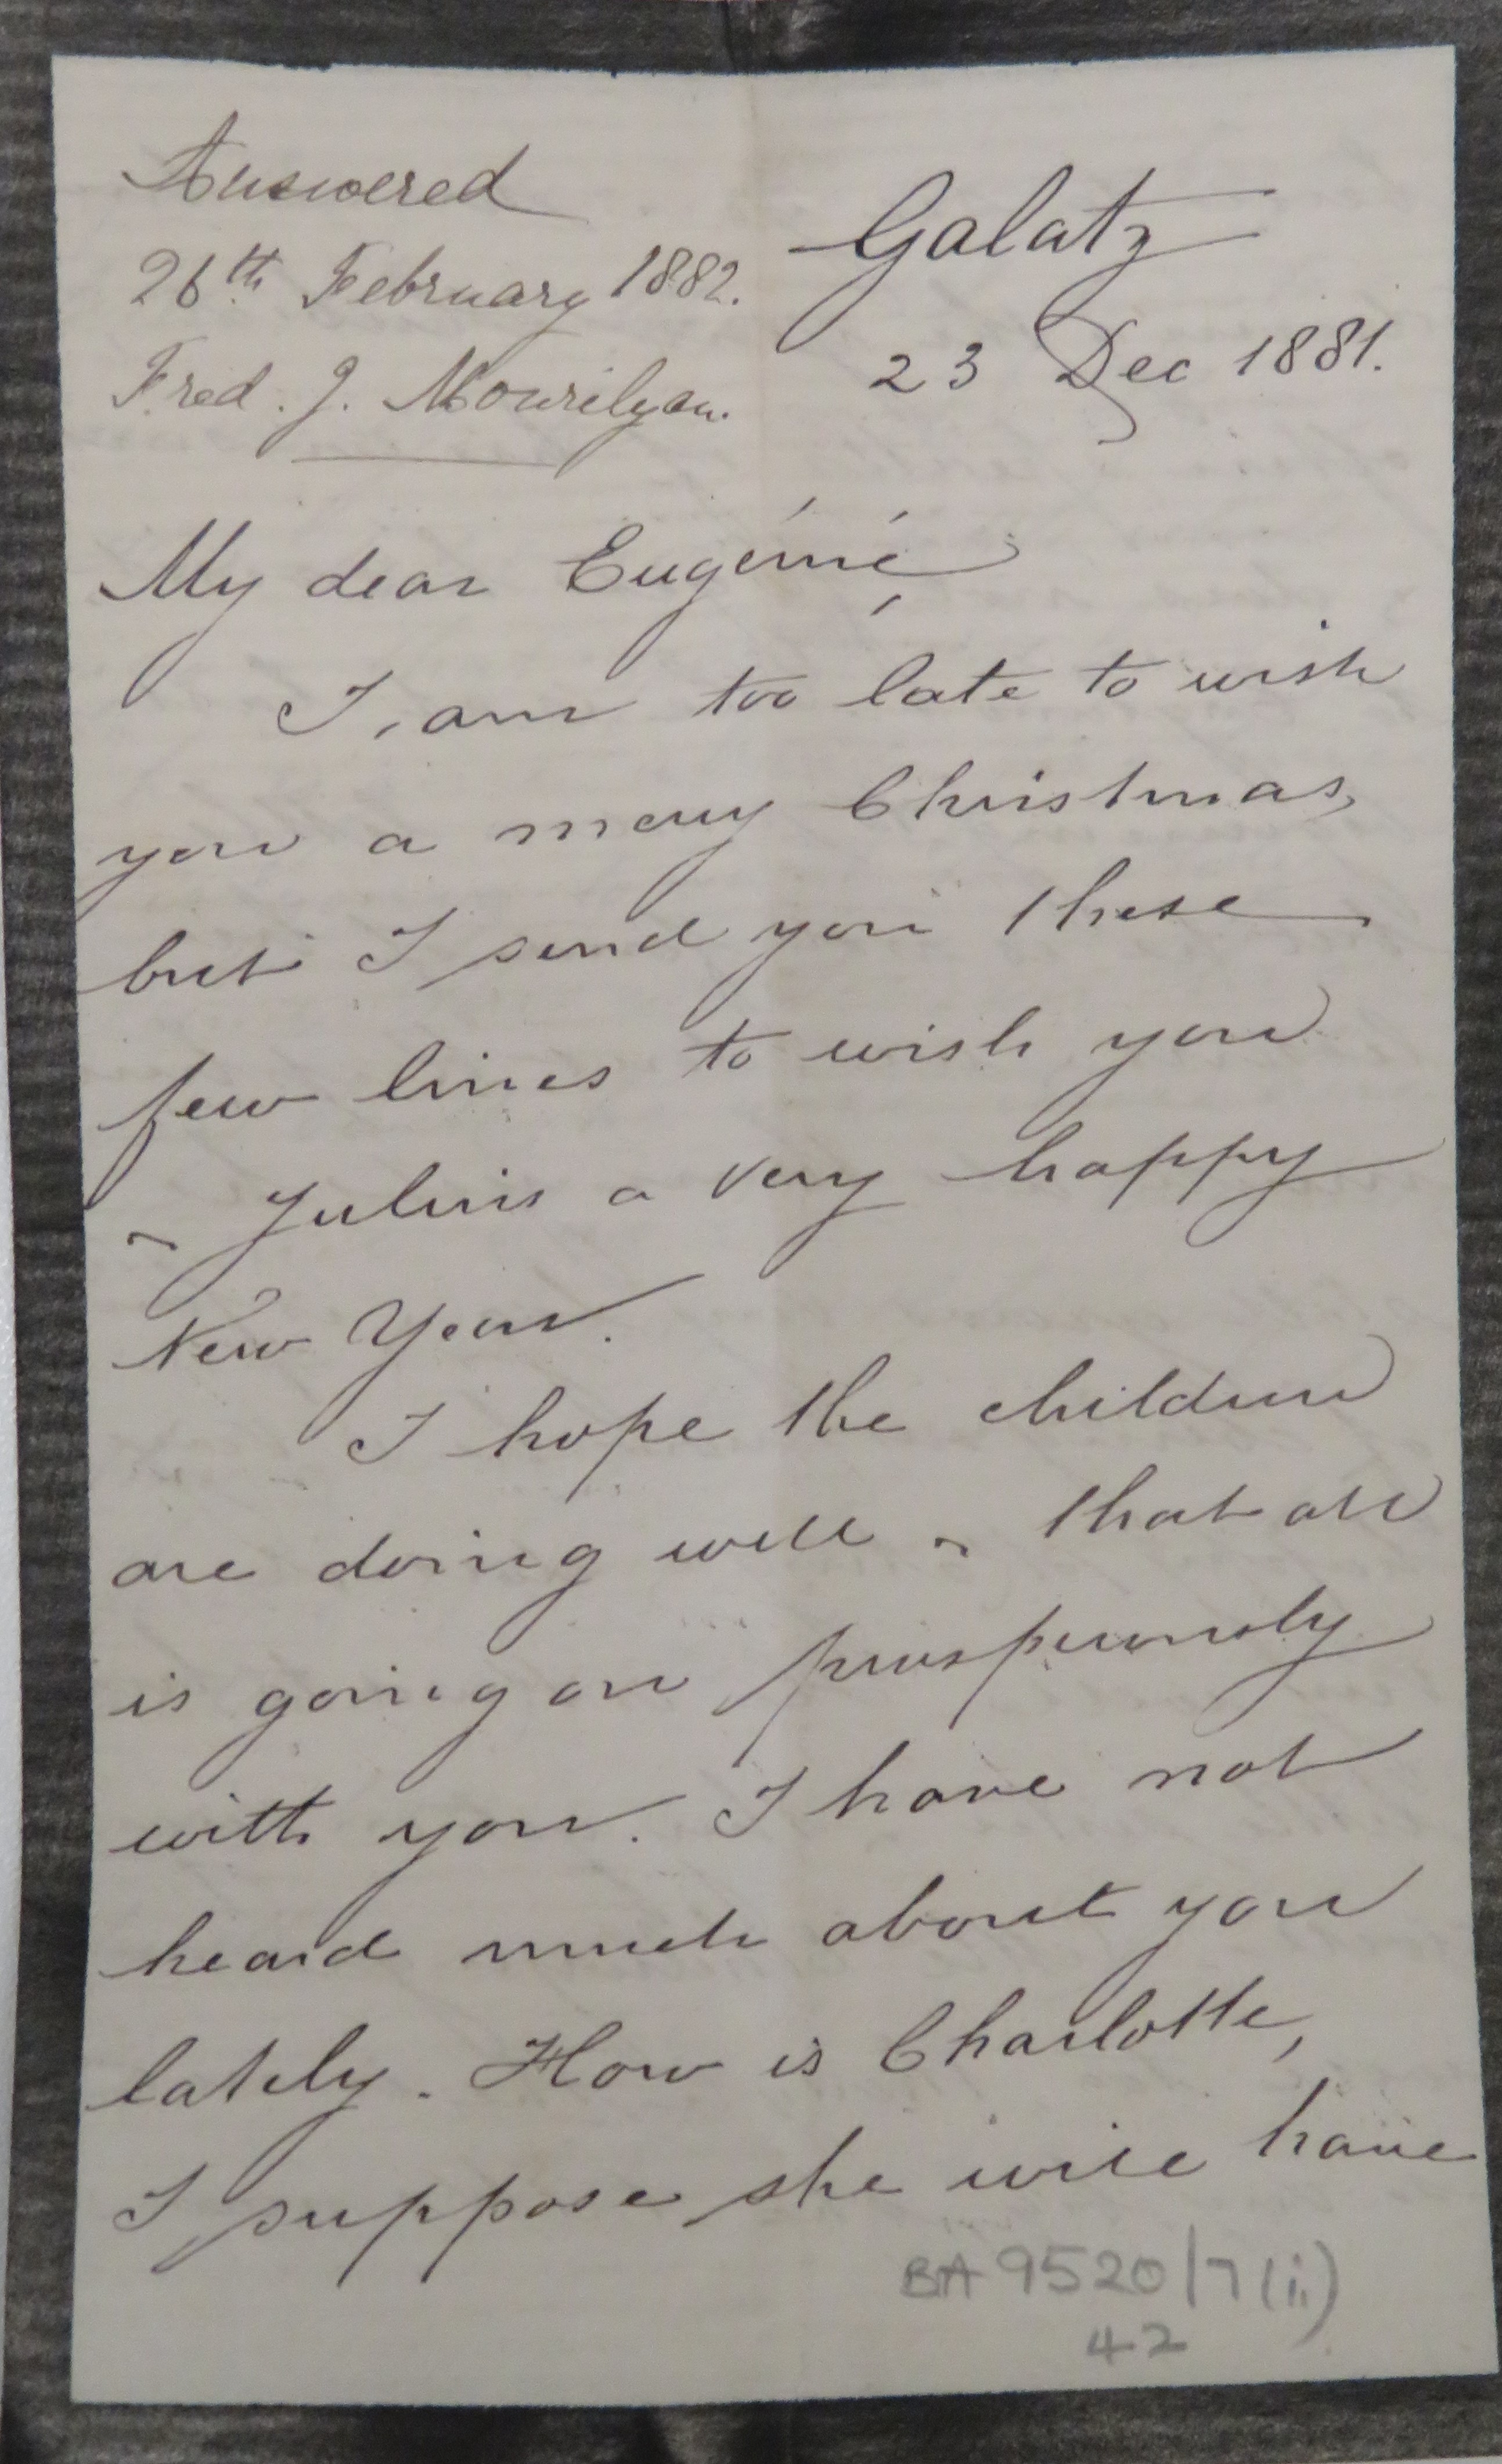 Answered
26th February 1882.
Fred. J. Mourilyan.
Galatz
23 Dec 1881.
My dear Eugénié
I am too late to wish
you a merry Christmas,
but I send you these
few lines to wish you
& Julius a very happy
New Year.
I hope the children
are doing well & that all
is going on prosperously
with you. I have not
heard much about you
lately. How is Charlotte,
I suppose she will have
BA 9520/7(ii)
42